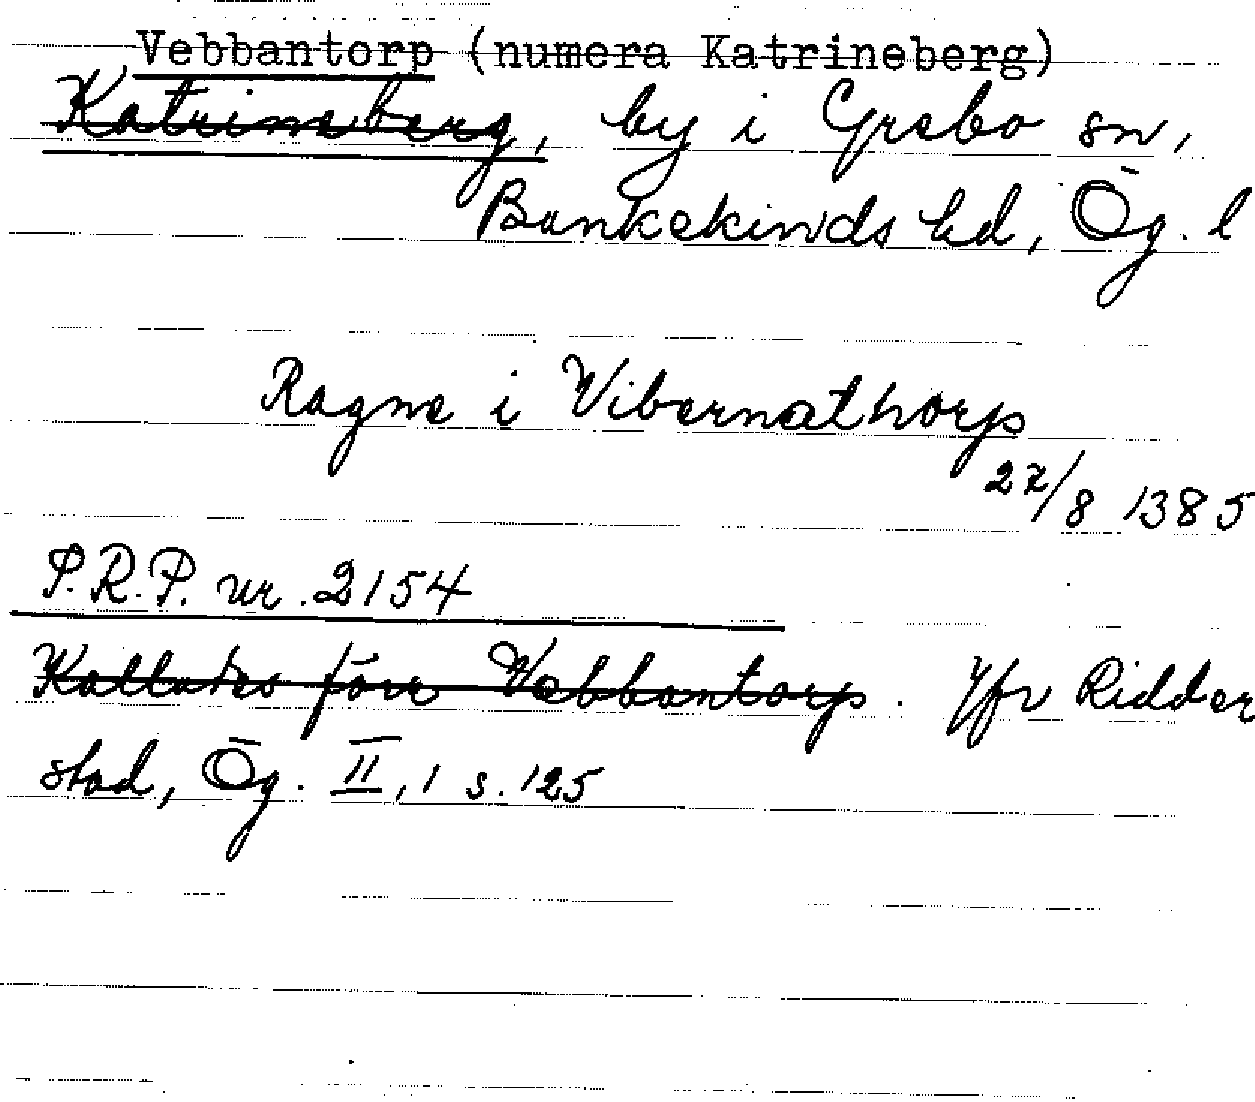 Vebbantorp (numera Katrineberg)
Katrineberg, by i Grebo sn,
Bankekinds hd, Ög. l
Ragne i Vibernathorp
22/8 1385
P.R.P. nr. 2154
Kallades förr Vebbantorp. Jfr Ridder
stad, Ög. II, 1 s. 125